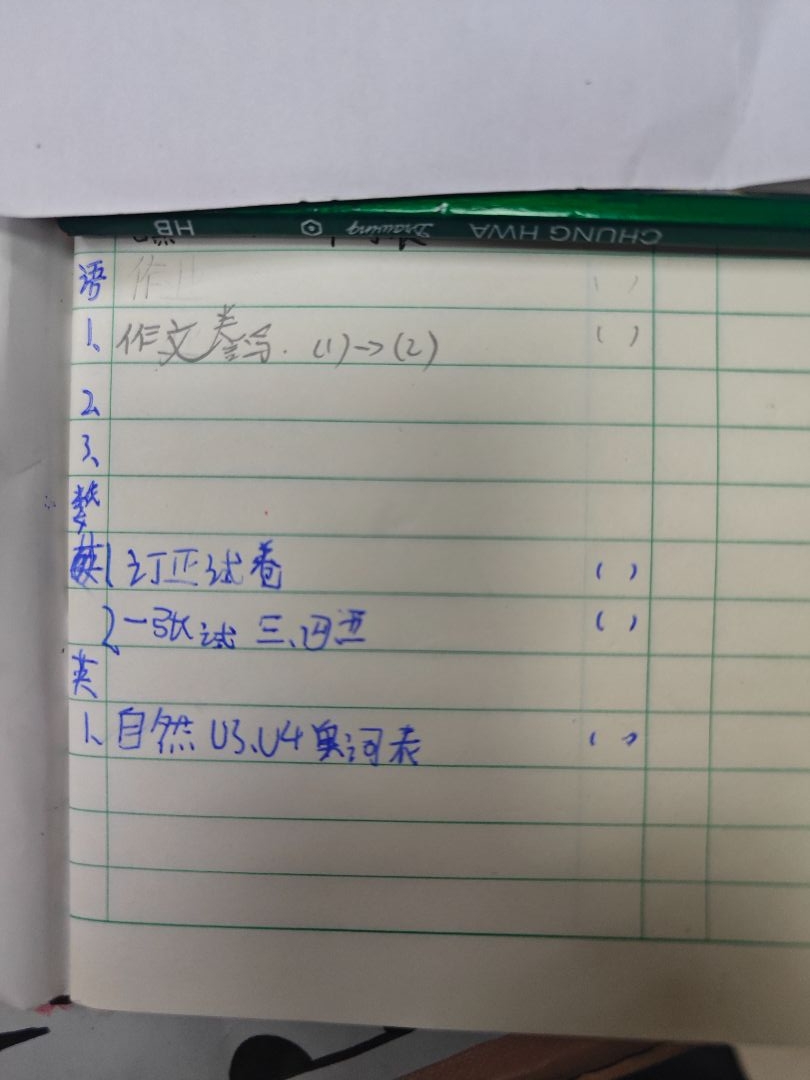 CHUNG HWA Drawing HB
语 作业 ( )
1、作文卷写. (1)→(2) ( )
2、
3、
数
1 订正试卷 ( )
2 一张试 三、四 ( )
英
1、自然 U3、U4 单词表 ( )